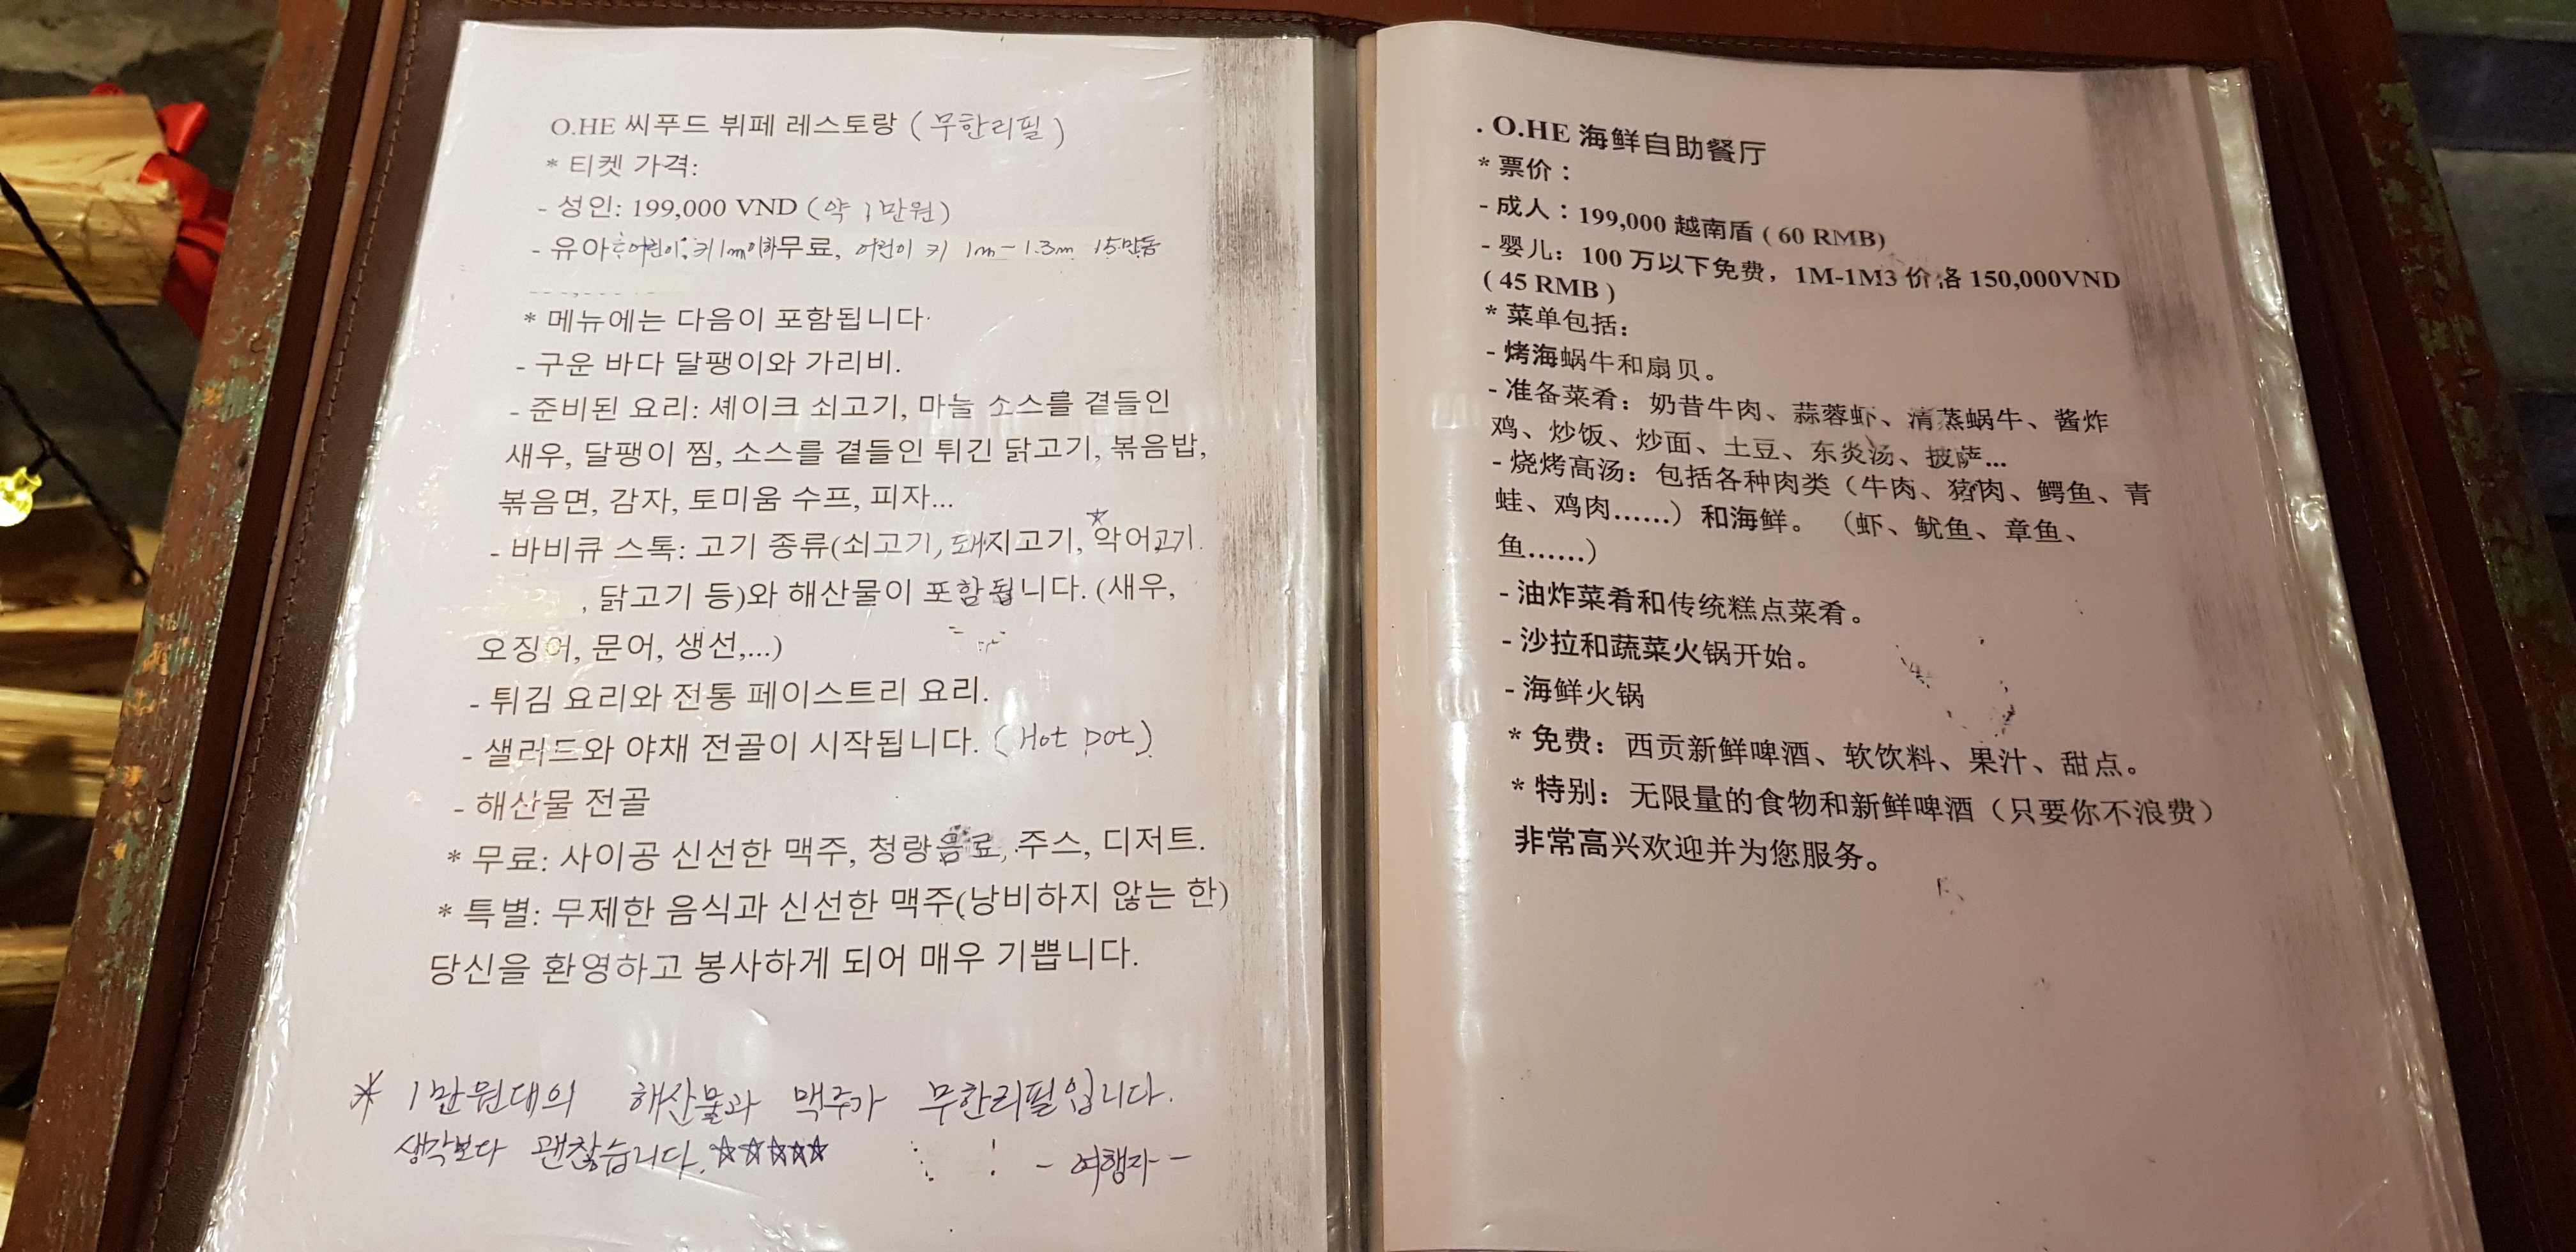 O.HE 씨푸드 뷔페 레스토랑 (무한리필)
* 티켓 가격:
- 성인: 199,000 VND (약 1만원)
- 유아 어린이: 키 1m이하 무료, 어린이 키 1m - 1.3m 15만동
* 메뉴에는 다음이 포함됩니다
- 구운 바다 달팽이와 가리비.
- 준비된 요리: 셰이크 쇠고기, 마늘 소스를 곁들인
새우, 달팽이 찜, 소스를 곁들인 튀긴 닭고기, 볶음밥,
볶음면, 감자, 토미움 수프, 피자...
- 바비큐 스톡: 고기 종류(쇠고기, 돼지고기, 악어고기
, 닭고기 등)와 해산물이 포함됩니다. (새우,
오징어, 문어, 생선,...)
- 튀김 요리와 전통 페이스트리 요리.
- 샐러드와 야채 전골이 시작됩니다. (Hot pot)
- 해산물 전골
* 무료: 사이공 신선한 맥주, 청량음료, 주스, 디저트.
* 특별: 무제한 음식과 신선한 맥주(낭비하지 않는 한)
당신을 환영하고 봉사하게 되어 매우 기쁩니다.
* 1만원대의 해산물과 맥주가 무한리필입니다.
생각보다 괜찮습니다. ☆☆☆☆☆
- 여행자 -
. O.HE 海鲜自助餐厅
* 票价：
- 成人：199,000 越南盾 ( 60 RMB)
- 婴儿：100 万以下免费，1M-1M3 价格 150,000VND
( 45 RMB )
* 菜单包括:
- 烤海蜗牛和扇贝。
- 准备菜肴：奶昔牛肉、蒜蓉虾、清蒸蜗牛、酱炸
鸡、炒饭、炒面、土豆、东炎汤、披萨...
- 烧烤高汤：包括各种肉类（牛肉、猪肉、鳄鱼、青
蛙、鸡肉......）和海鲜。 （虾、鱿鱼、章鱼、
鱼......）
- 油炸菜肴和传统糕点菜肴。
- 沙拉和蔬菜火锅开始。
- 海鲜火锅
* 免费：西贡新鲜啤酒、软饮料、果汁、甜点。
* 特别：无限量的食物和新鲜啤酒（只要你不浪费）
非常高兴欢迎并为您服务。